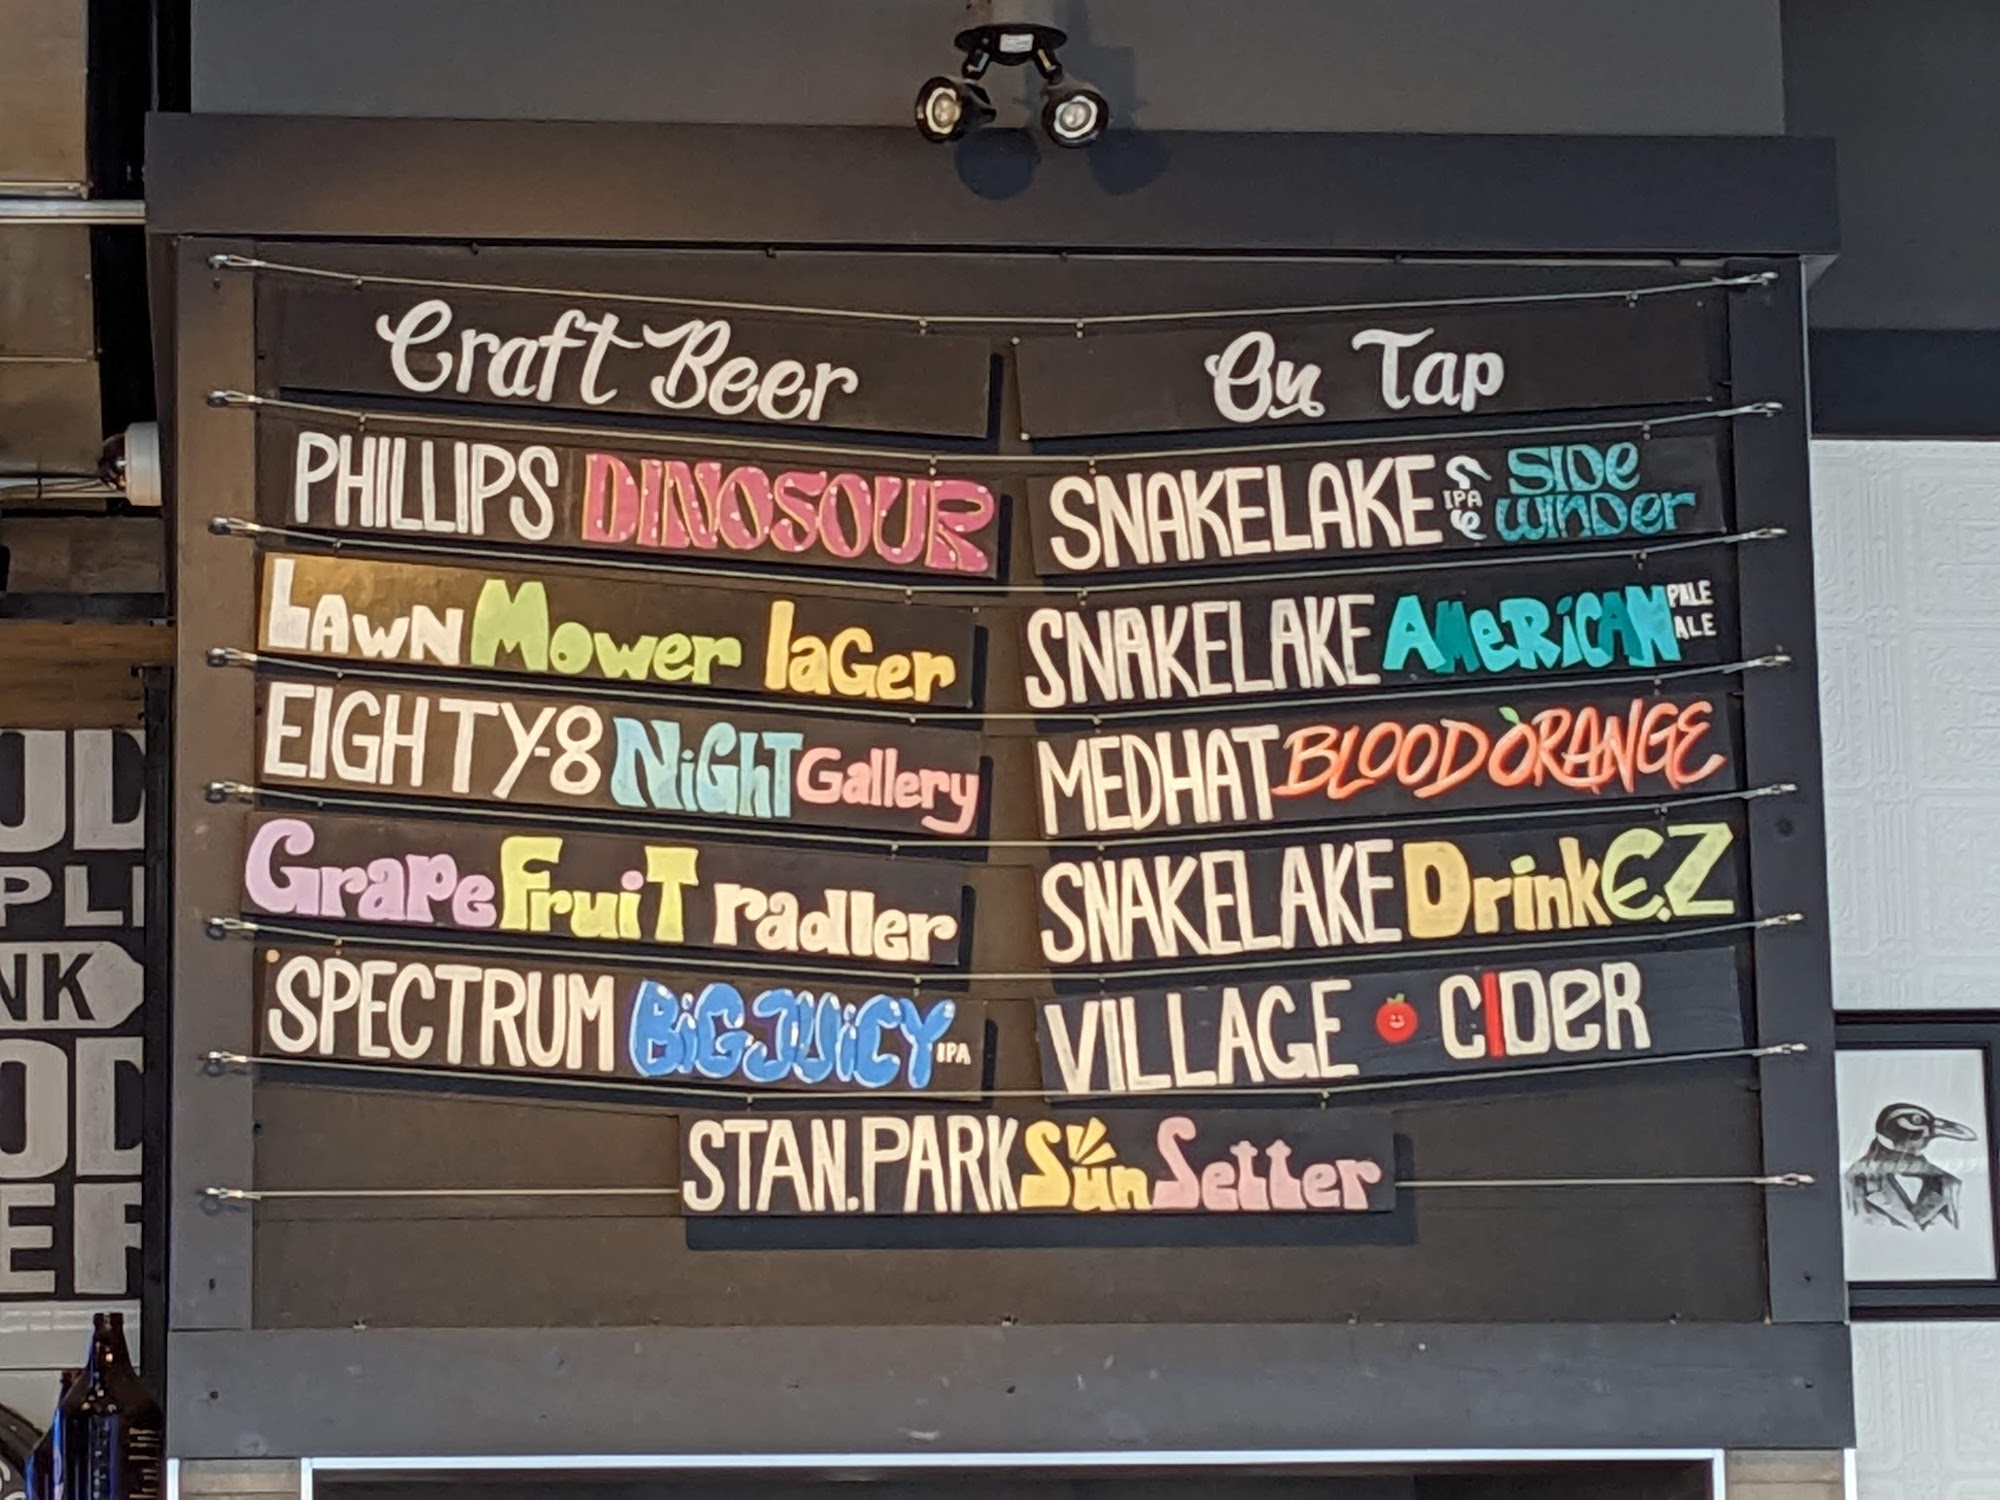 Craft Beer On Tap
PHILLIPS DINOSOUR
LAWN MOWER lAGer
EIGHTY-8 NiGHT Gallery
GrapeFruiT radler
SPECTRUM BiG JUiCY IPA
SNAKELAKE IPA SIDE WINDer
SNAKELAKE AMeRiCAN PALE ALE
MEDHAT BLOOD ORANGE
SNAKELAKE Drink E.Z
VILLAGE CIDeR
STAN.PARK Sun Setter